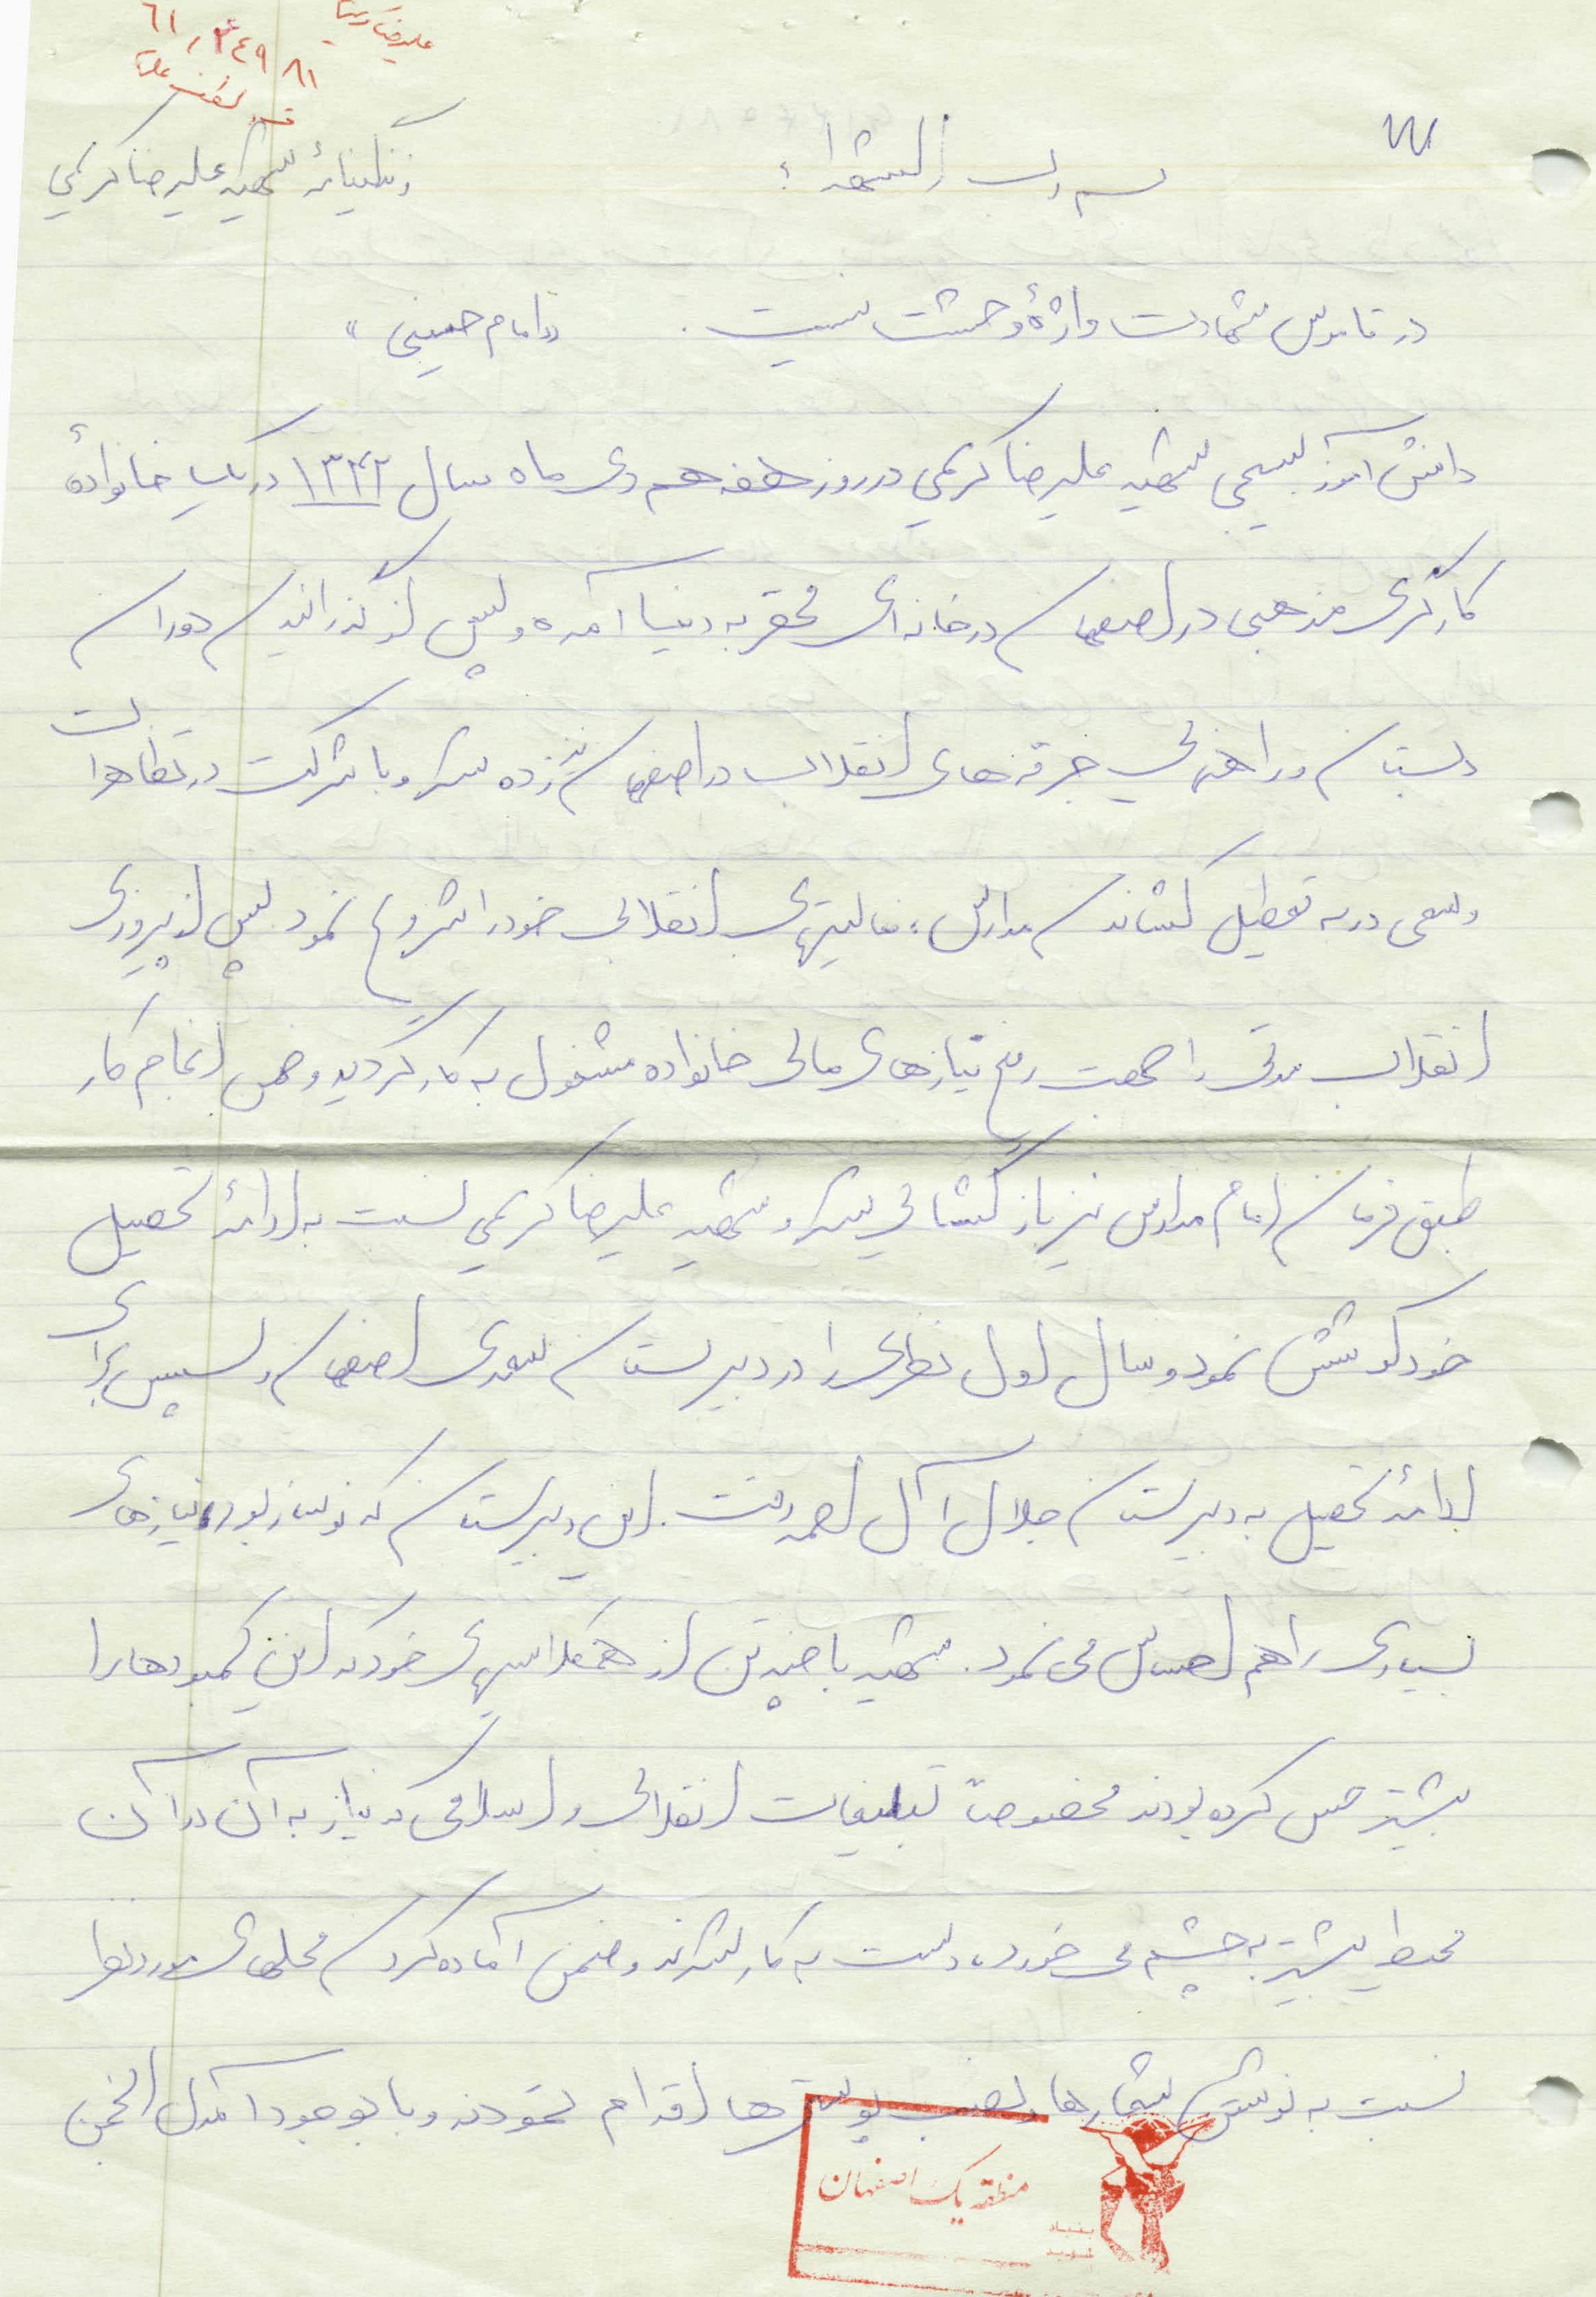 علیرضا کریمی
بسم رب الشهداء
زندگینامهٔ شهید علیرضا کریمی
در قاموس شهادت واژهٔ وحشت نیست. «امام خمینی»
دانش آموز بسیجی شهید علیرضا کریمی در روز هفدهم دی ماه سال ۱۳۴۲ در یک خانوادهٔ
کارگری مذهبی در اصفهان در خانه ای محقر به دنیا آمده و پس از گذرانیدن دوران
دبستان و راهنمایی جرقه های انقلاب در اصفهان نیز زده شد و با شرکت در تظاهرات
و سعی در به تعطیل کشاندن مدارس، فعالیتهای انقلابی خود را شروع نمود پس از پیروزی
انقلاب مدتی را جهت رفع نیازهای مالی خانواده مشغول به کار گردید و ضمن انجام کار
طبق فرمان امام مدارس نیز بازگشائی شد و شهید علیرضا کریمی نسبت به ادامهٔ تحصیل
خود کوشش نمود و سال اول نظری را در دبیرستان سعدی اصفهان و سپس برای
ادامهٔ تحصیل به دبیرستان جلال آل احمد رفت. این دبیرستان که نوساز بود، نیازهای
بسیاری را هم احساس می نمود. شهید با چند تن از همکلاسیهای خود که این کمبودها را
بیشتر حس کرده بودند مخصوصاً تبلیغات انقلابی و اسلامی که نیاز به آن در آن
محیط بیشتر به چشم می خورد، دست به کار شدند و ضمن آماده کردن محلهای مورد نظر
نسبت به نوشتن شعارها و نصب پوسترها اقدام نمودند و با بوجود آمدن انجمن
منطقه یک اصفهان
بنیاد
شهید